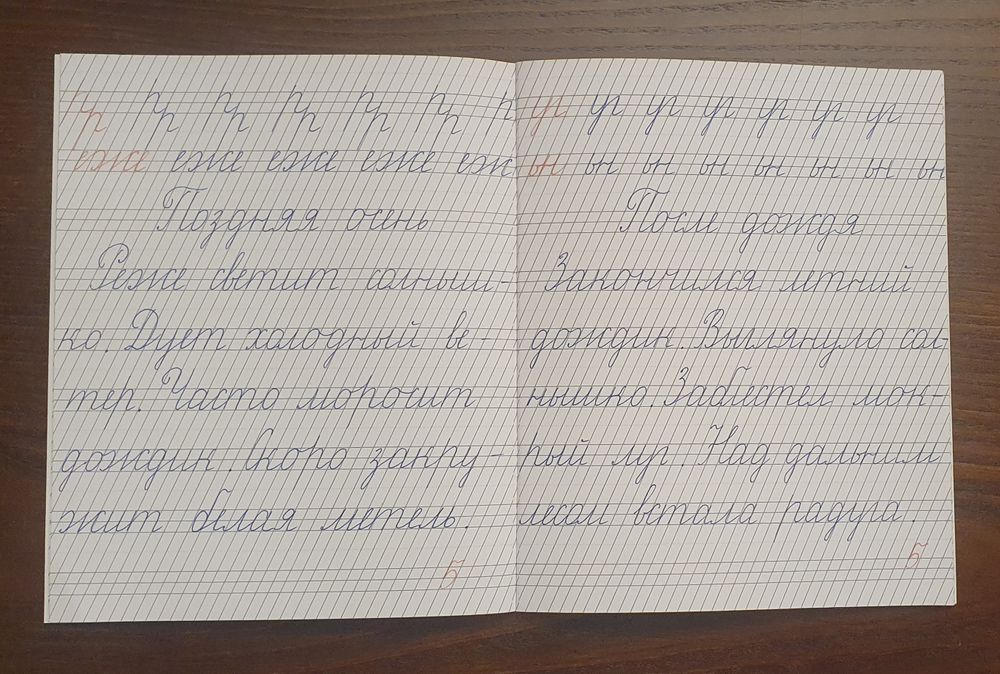 еже еже еже еже еж
Поздняя осень
Реже светит солныш-
ко. Дует холодный ве-
тер. Часто моросит
дождик. Скоро закру-
жит белая метель.
5
ьн ьн ьн ьн ьн ьн ьн ьн
После дождя
Закончился летний
дождик. Выглянуло сол-
нышко. Заблестел мок-
рый луг. Над дальним
лесом встала радуга
5